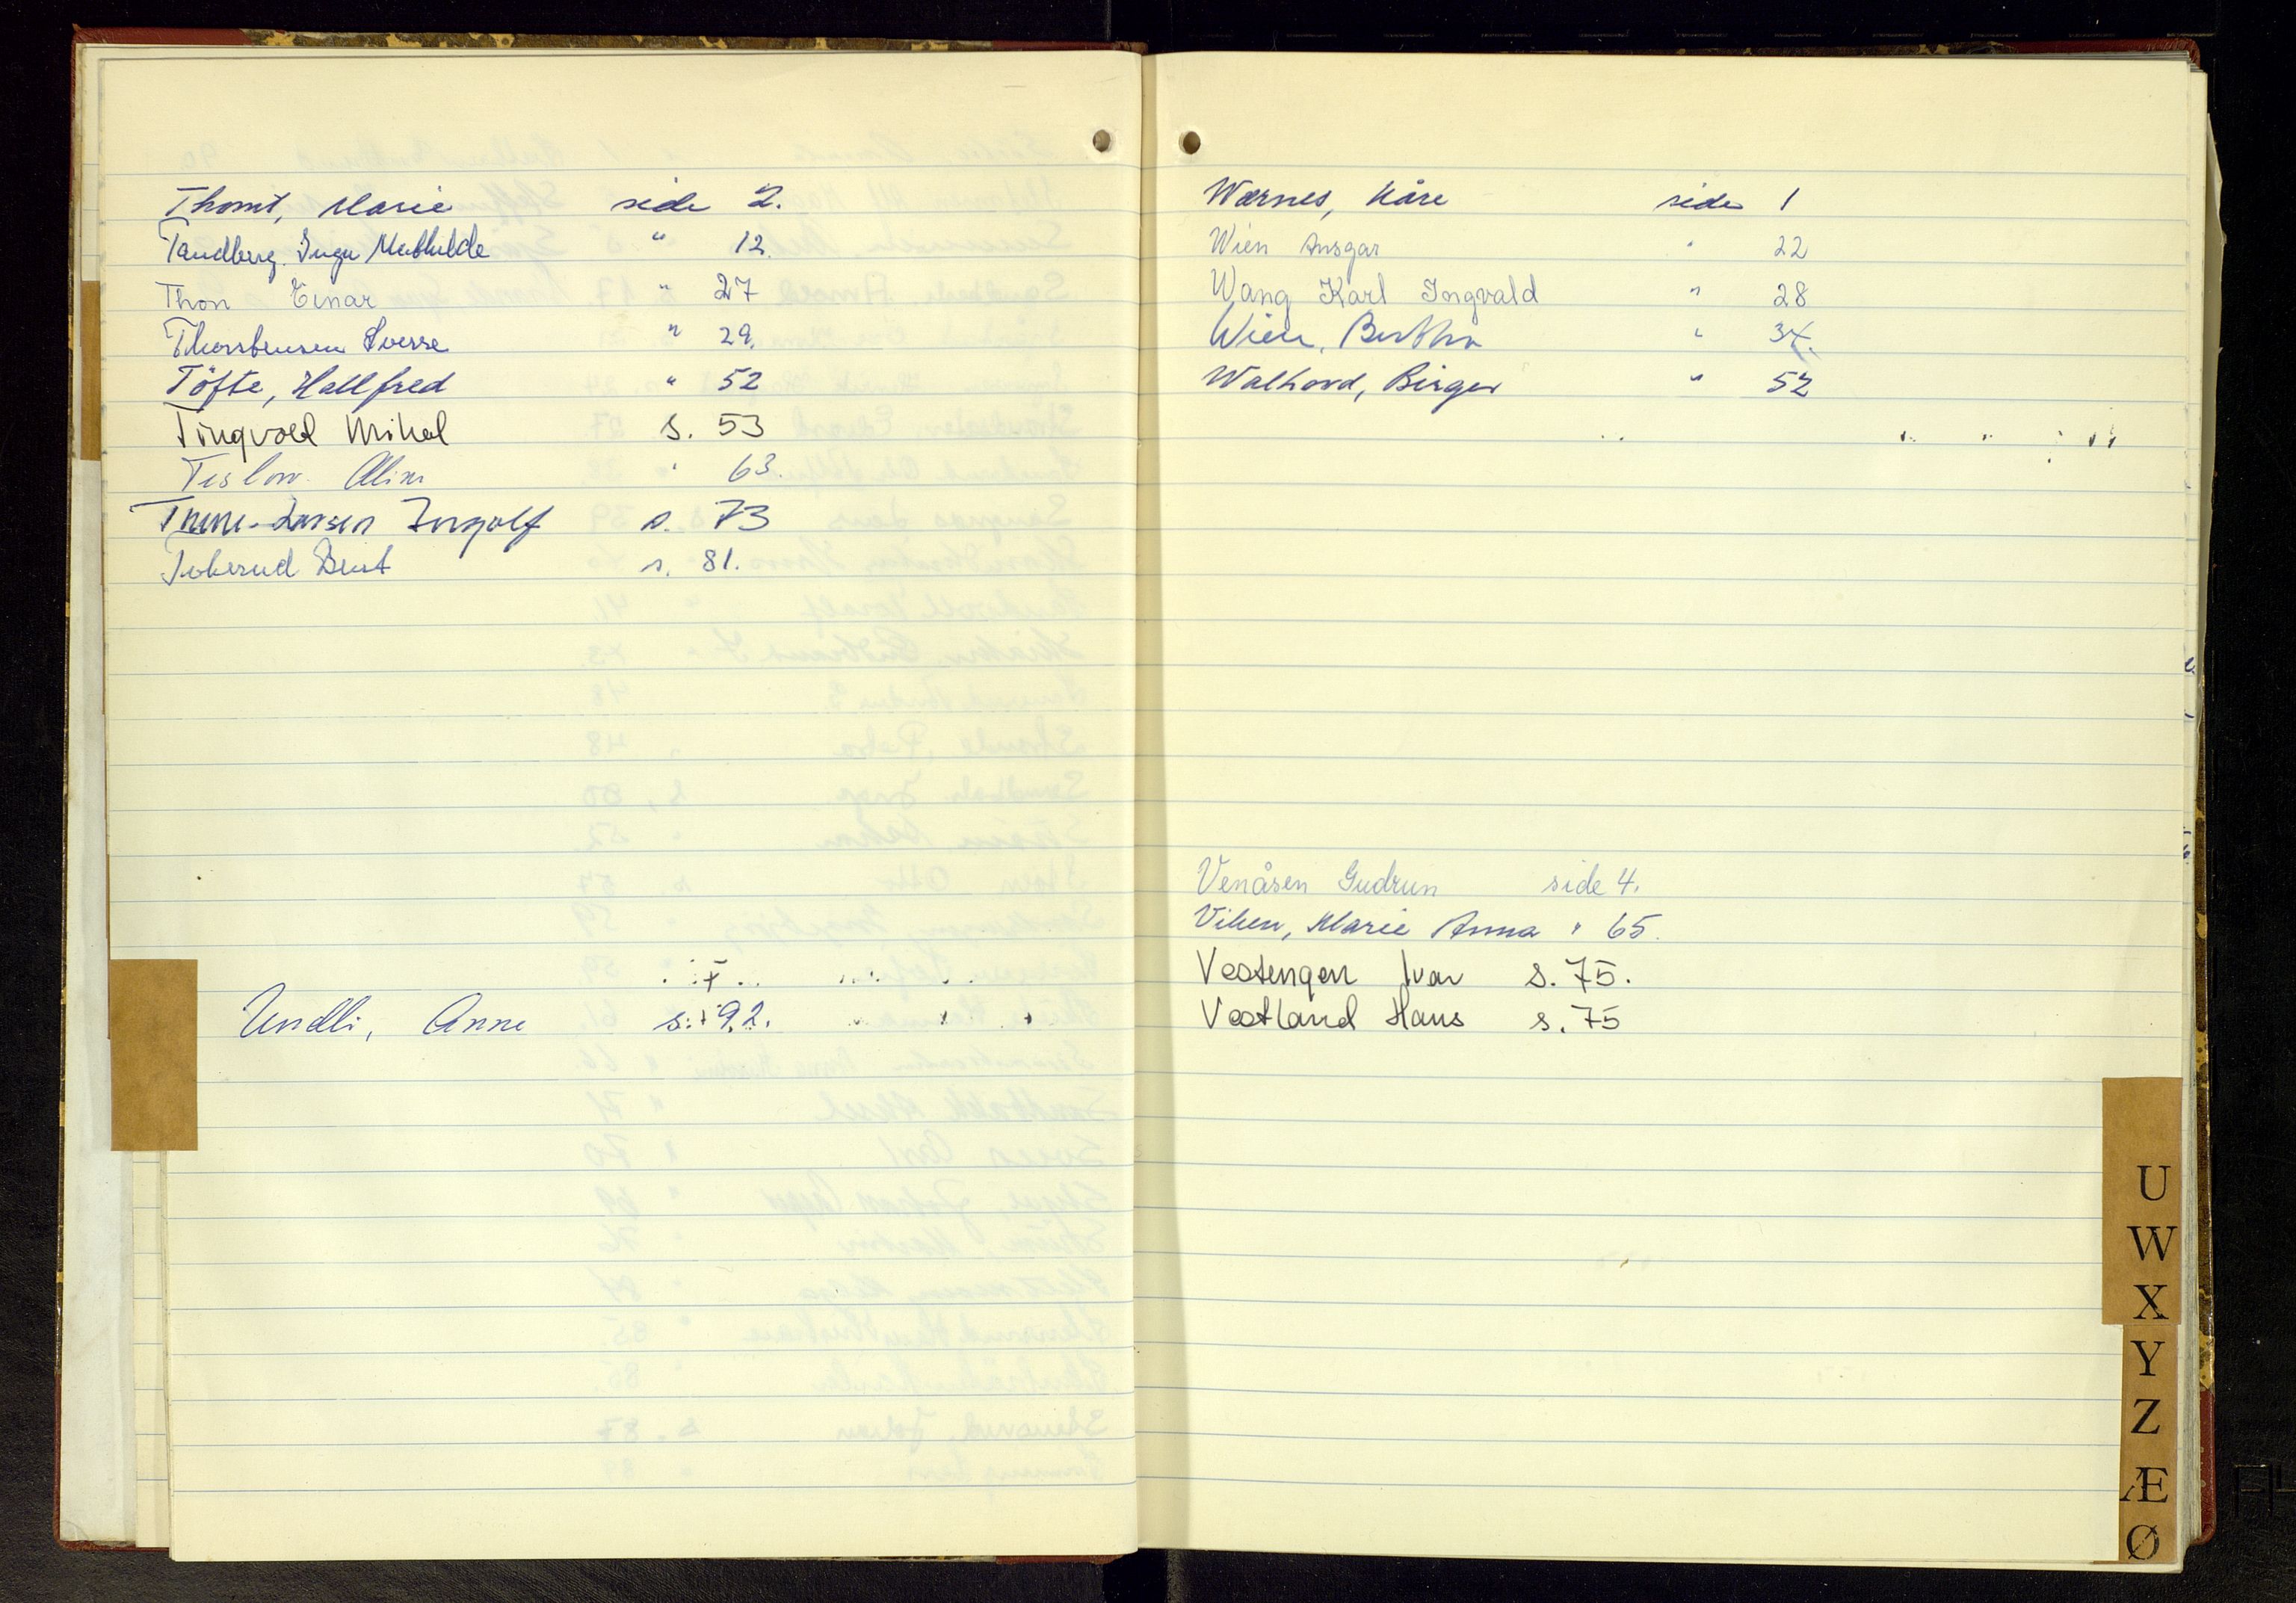 Thomt, Marie side 2.
Tandberg. Inga Mathilde " 12.
Thon Einar " 27
Thorstensen Sverre " 29.
Töfte, Hallfred " 52
Tingvold Mikal s. 53
Teslow Alim " 63.
Larsen Ingolf s. 73
Bert s. 81.
Undli, Anne s. 92.
Wærnes, Kåre side 1
Wien Ansgar " 22
Wang Karl Ingvald " 28
Wien, Bertha " 34.
Walhovd, Birger " 52
Venåsen Gudrun side 4.
Viken, Marie Anna " 65.
Vestengen Ivar s. 75.
Vestland Hans s. 75
U
W
X
Y
Z
Æ
Ø